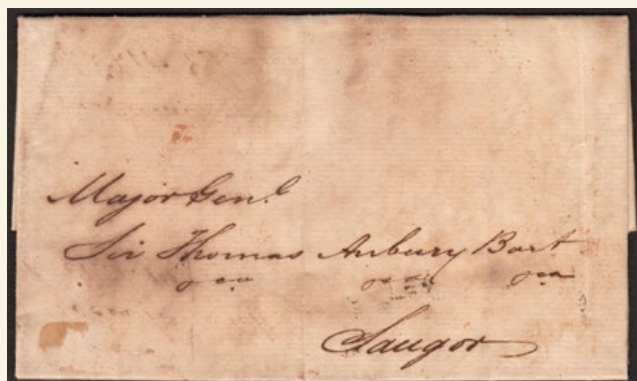 Major Genl
Sir Thomas Anbury Bart
Saugor